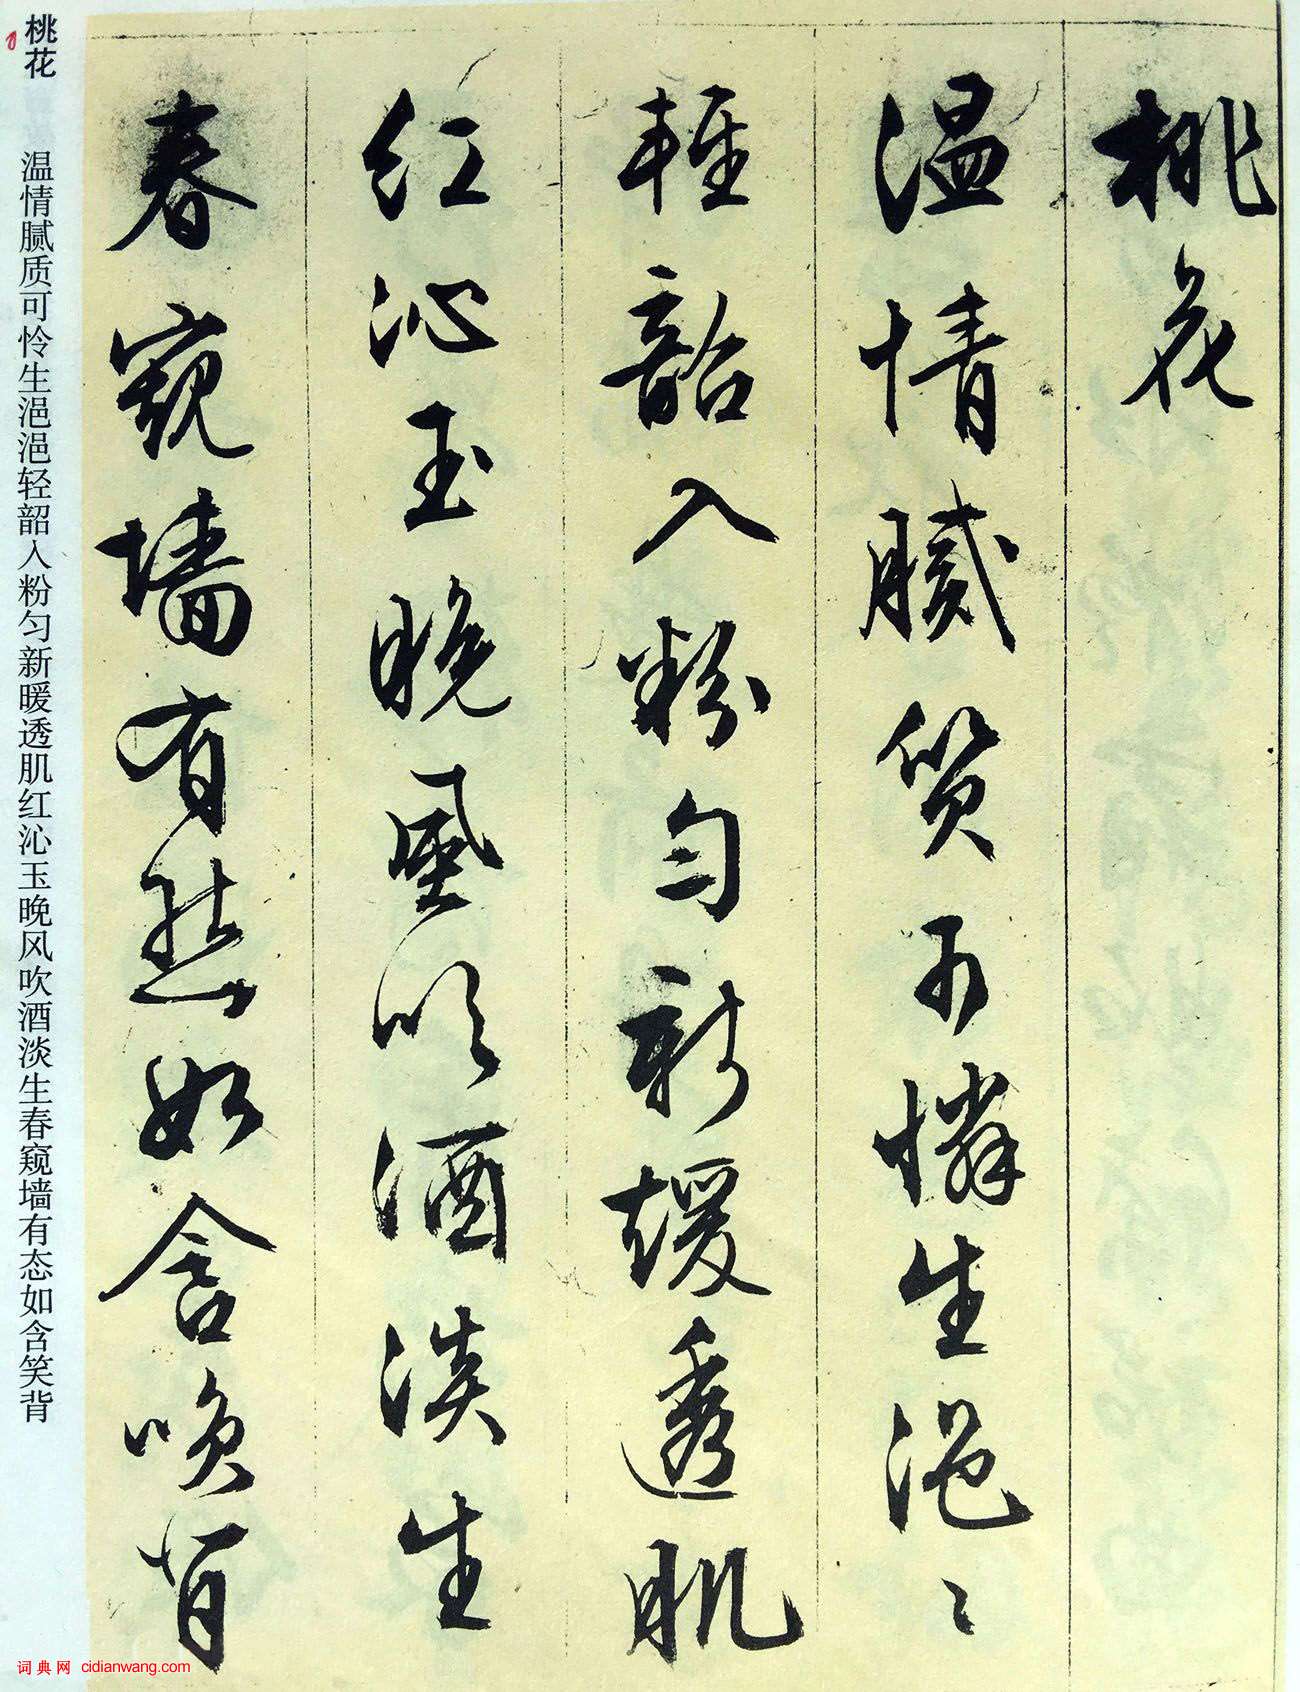 桃花
温情膩質可憐生浥〻
輕韶入粉匀新煖透肌
紅沁玉晚風吹酒淡生
春窺墻有態如含唉背
桃花
温情腻质可怜生浥浥轻韶入粉匀新暖透肌红沁玉晚风吹酒淡生春窥墙有态如含笑背
词典网 cidianwang.com